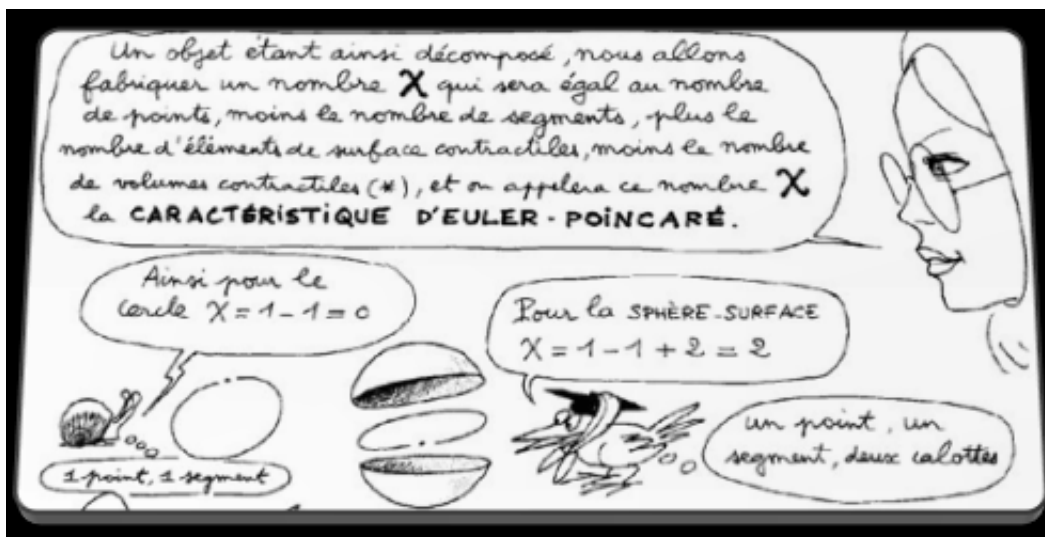 Un objet étant ainsi décomposé, nous allons
fabriquer un nombre χ qui sera égal au nombre
de points, moins le nombre de segments, plus le
nombre d'éléments de surface contractiles, moins le nombre
de volumes contractiles (*), et on appelera ce nombre χ
la CARACTÉRISTIQUE D'EULER-POINCARÉ.
Ainsi pour le
cercle χ = 1 - 1 = 0
Pour la SPHÈRE-SURFACE
χ = 1 - 1 + 2 = 2
un point, un
segment, deux calottes
1 point, 1 segment